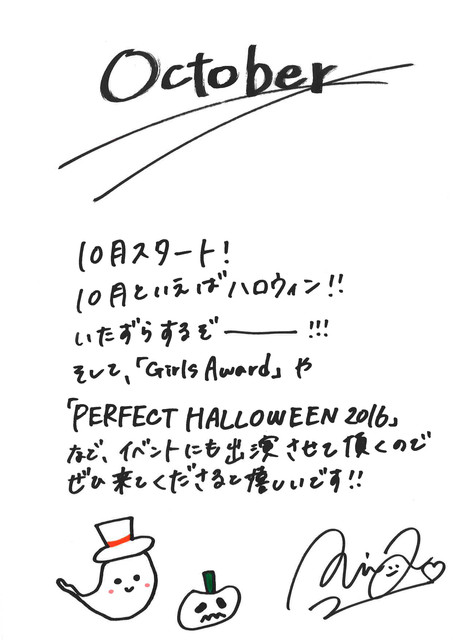 October
10月スタート!
10月といえばハロウィン!!
いたずらするぞ―――!!!
そして、「Girls Award」や
「PERFECT HALLOWEEN 2016」
など、イベントにも出演させて頂くので
ぜひ来てくださると嬉しいです!!